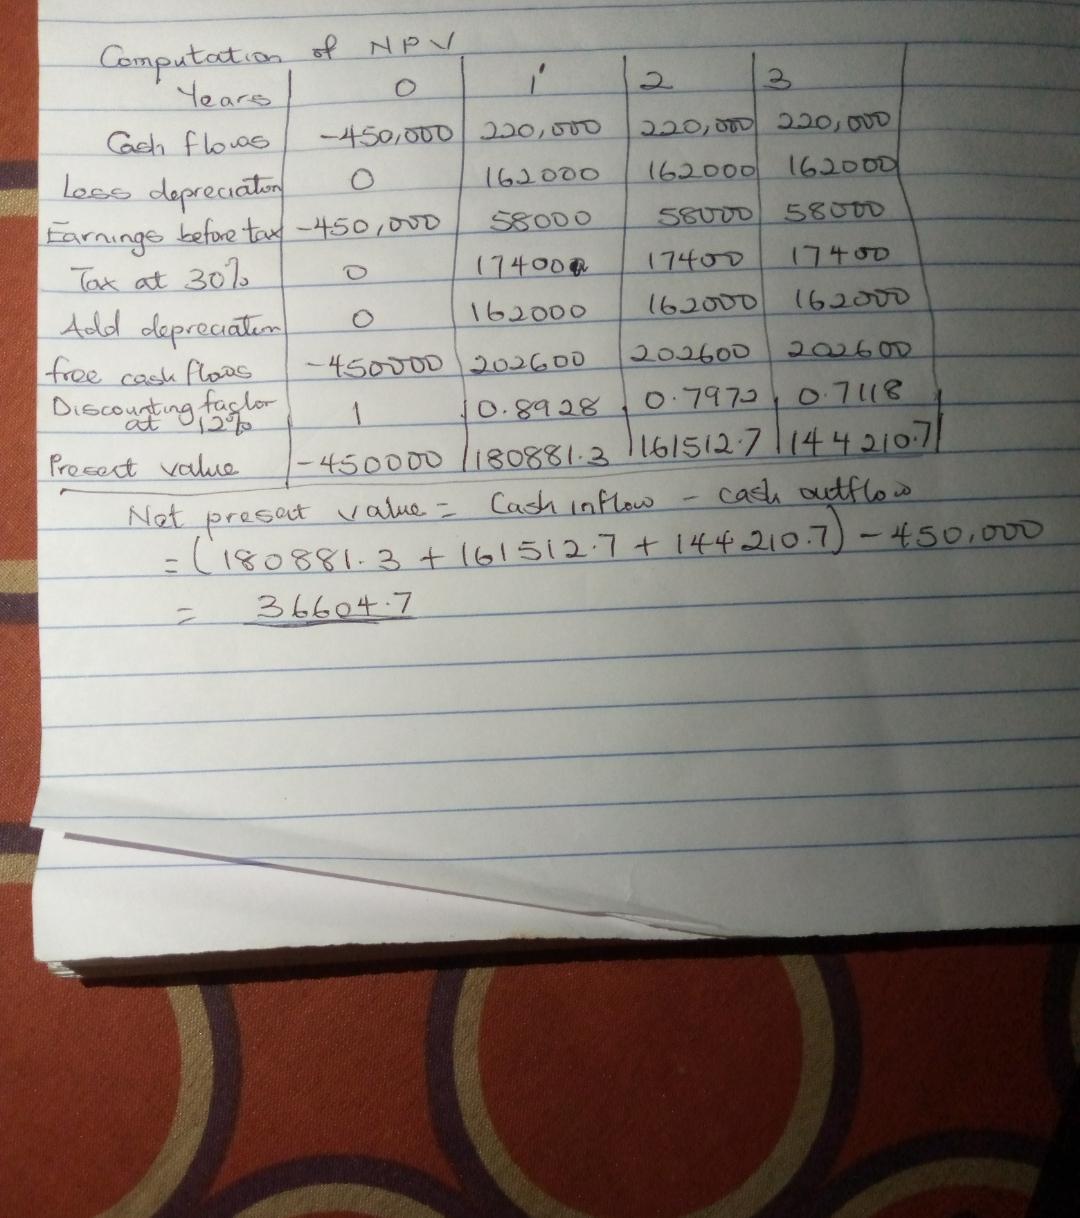 Computation of NPV
Years 0 1 2 3
Cash flows -450,000 220,000 220,000 220,000
Less depreciation 0 162000 162000 162000
Earnings before tax -450,000 58000 58000 58000
Tax at 30% 0 17400 17400 17400
Add depreciation 0 162000 162000 162000
free cash flows -450000 202600 202600 202600
Discounting factor at 12% 1 0.8928 0.7972 0.7118
Present value -450000 180881.3 161512.7 144210.7
Net present value = Cash inflow - cash outflow
= (180881.3 + 161512.7 + 144210.7) - 450,000
= 36604.7